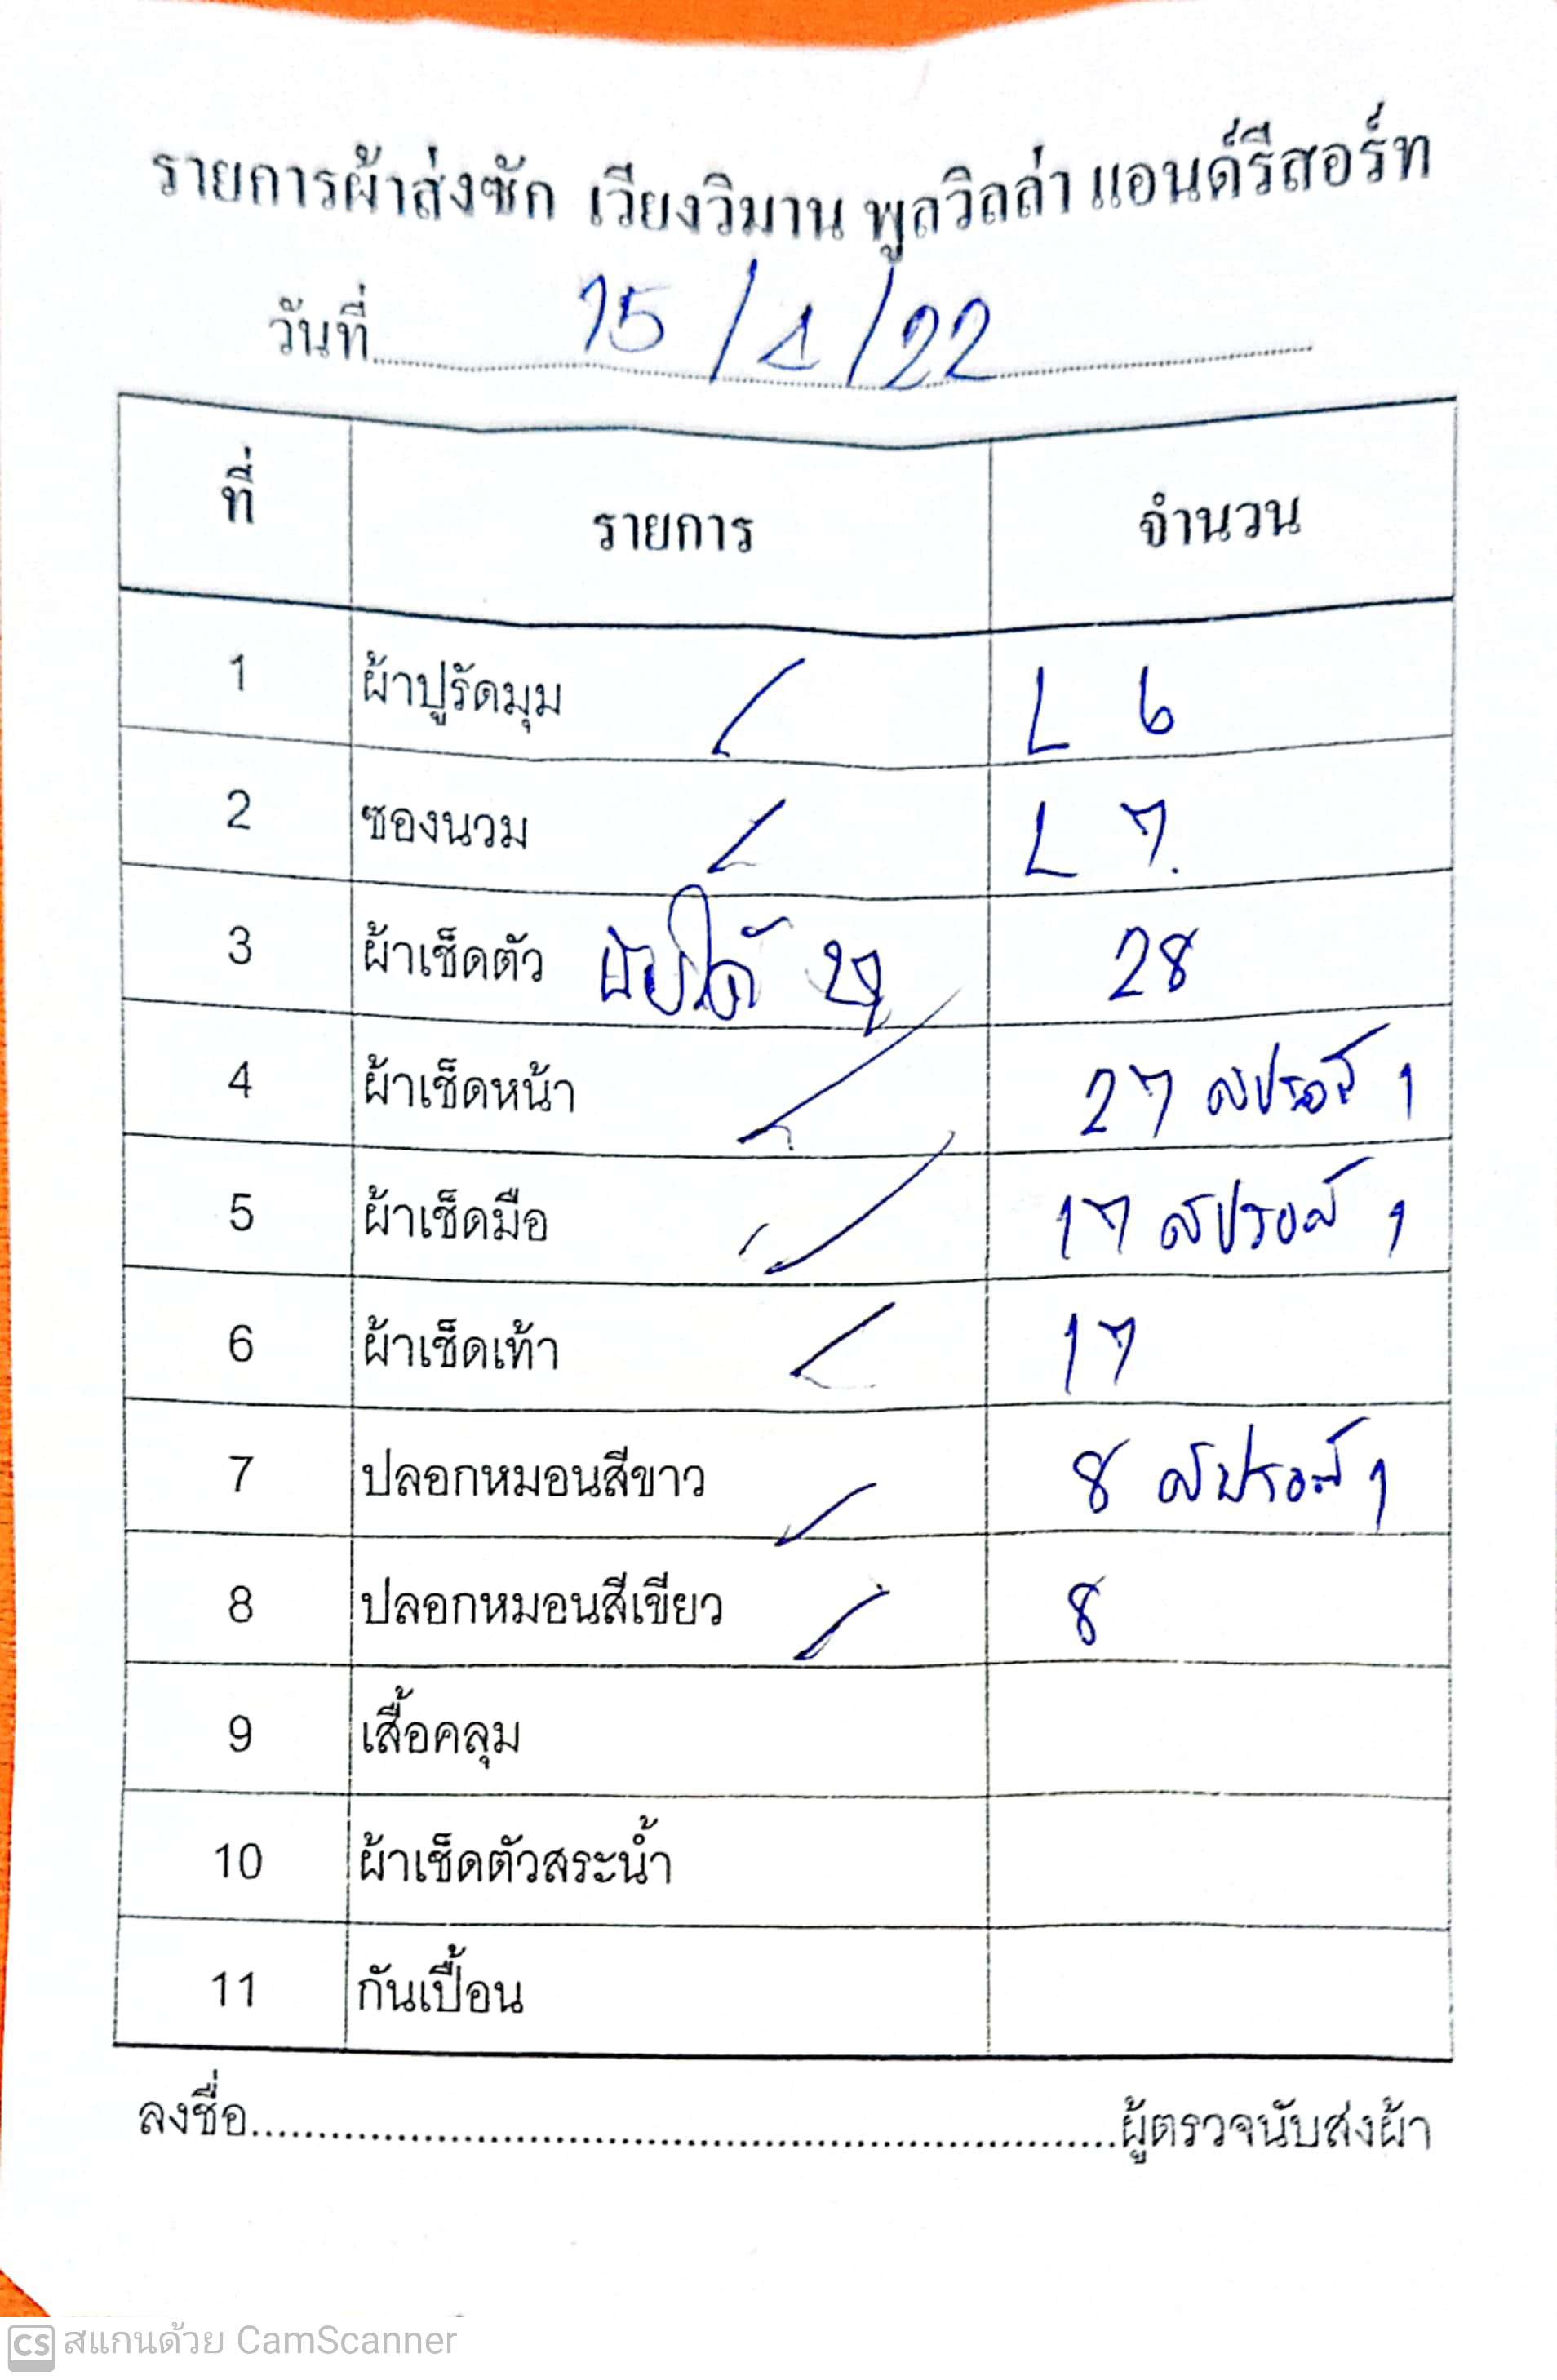 รายการผ้าส่งซัก เวียงวิมาน พูลวิลล่า แอนด์รีสอร์ท
วันที่ 15/1/22
ที่ รายการ จำนวน
1 ผ้าปูรัดมุม L 6
2 ซองนวม L 7.
3 ผ้าเช็ดตัว นับได้ 27 28
4 ผ้าเช็ดหน้า 27 สปอร์ 1
5 ผ้าเช็ดมือ 17 สปอร์ 1
6 ผ้าเช็ดเท้า 17
7 ปลอกหมอนสีขาว 8 สปอร์ 1
8 ปลอกหมอนสีเขียว 8
9 เสื้อคลุม
10 ผ้าเช็ดตัวสระน้ำ
11 กันเปื้อน
ลงชื่อ ผู้ตรวจนับส่งผ้า
CS สแกนด้วย CamScanner